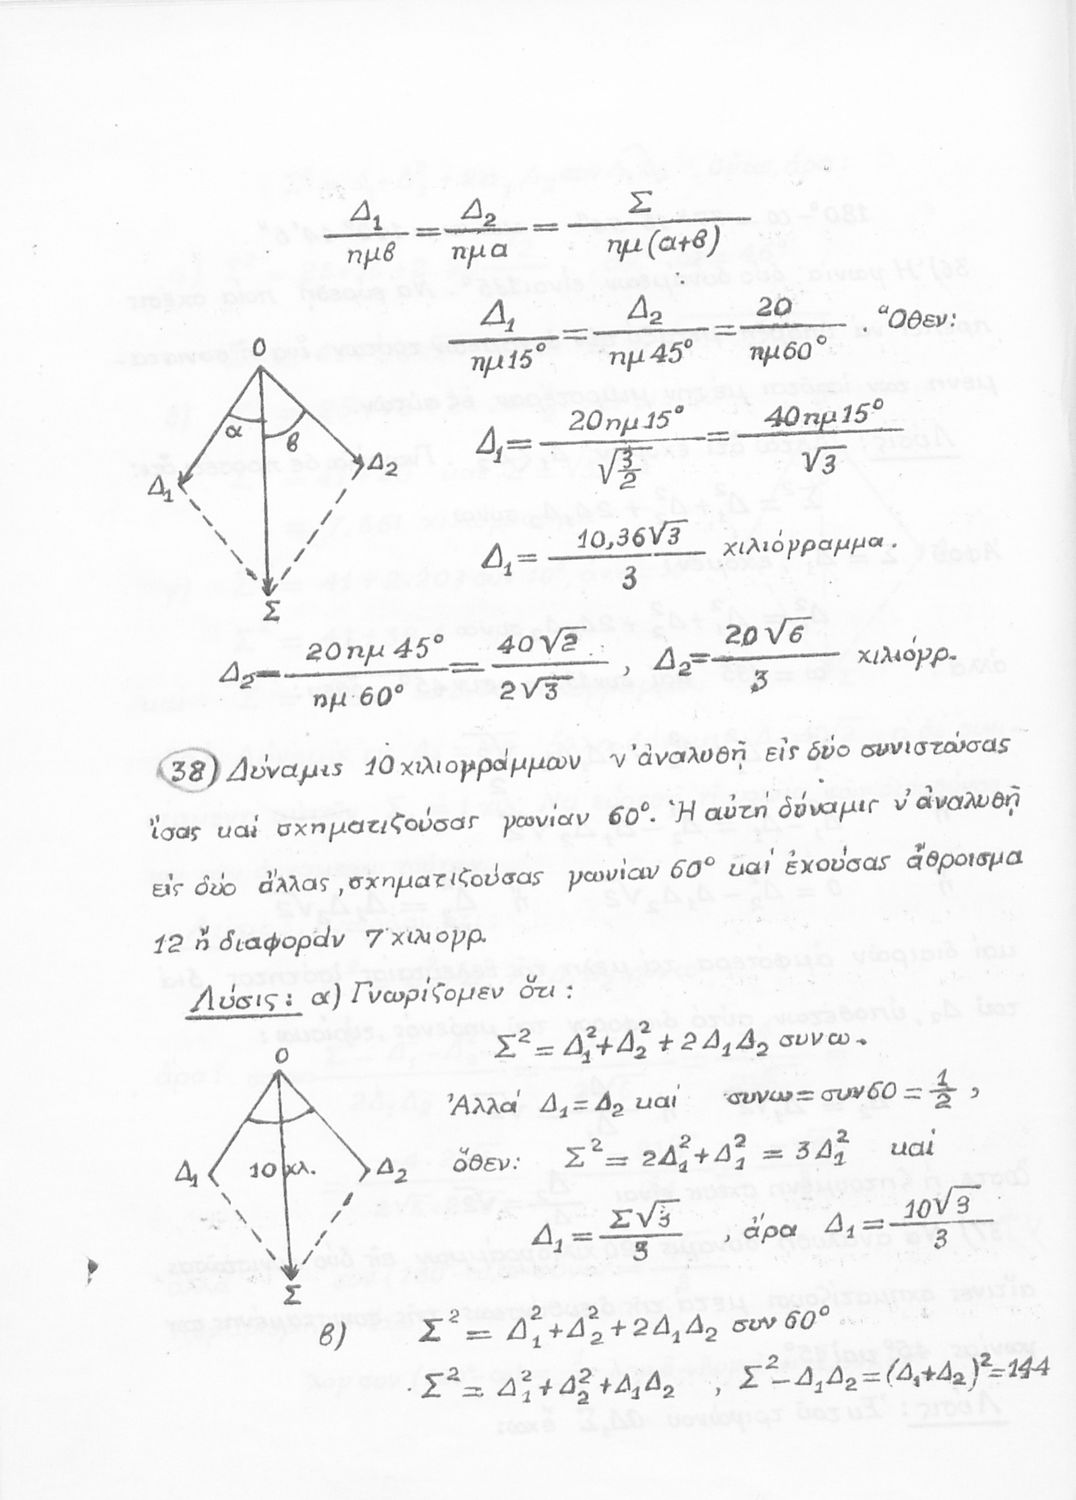 Δ₁/ημβ = Δ₂/ημα = Σ/ημ(α+β)
Δ₁/ημ15° = Δ₂/ημ45° = 20/ημ60° . Ὅθεν:
Ο
α β
Δ₁ Δ₂
Σ
Δ₁ = 20ημ15°/√3/2 = 40ημ15°/√3
Δ₁ = 10,36√3/3 χιλιόγραμμα.
Δ₂ = 20ημ45°/ημ·60° = 40√2/2√3 , Δ₂ = 20√6/3 χιλιόγρ.
38) Δύναμις 10 χιλιογράμμων ν᾿ ἀναλυθῇ εἰς δύο συνιστώσας
ἴσας καί σχηματιζούσας γωνίαν 60°. Ἡ αὐτή δύναμις ν᾿ ἀναλυθῇ
εἰς δύο ἄλλας, σχηματιζούσας γωνίαν 60° καί ἐχούσας ἄθροισμα
12 ἤ διαφοράν 7 χιλιογρ.
Λύσις: α) Γνωρίζομεν ὅτι:
Σ² = Δ₁² + Δ₂² + 2Δ₁Δ₂ συνω.
Ο
Δ₁ 10 χλ. Δ₂
Σ
Ἀλλά Δ₁ = Δ₂ καί συνω = συν60 = 1/2 ,
ὅθεν: Σ² = 2Δ₁² + Δ₁² = 3Δ₁² καί
Δ₁ = Σ√3/3 , ἄρα Δ₁ = 10√3/3
β) Σ² = Δ₁² + Δ₂² + 2Δ₁Δ₂ συν60°
Σ² = Δ₁² + Δ₂² + Δ₁Δ₂ , Σ² - Δ₁Δ₂ = (Δ₁+Δ₂)² = 144